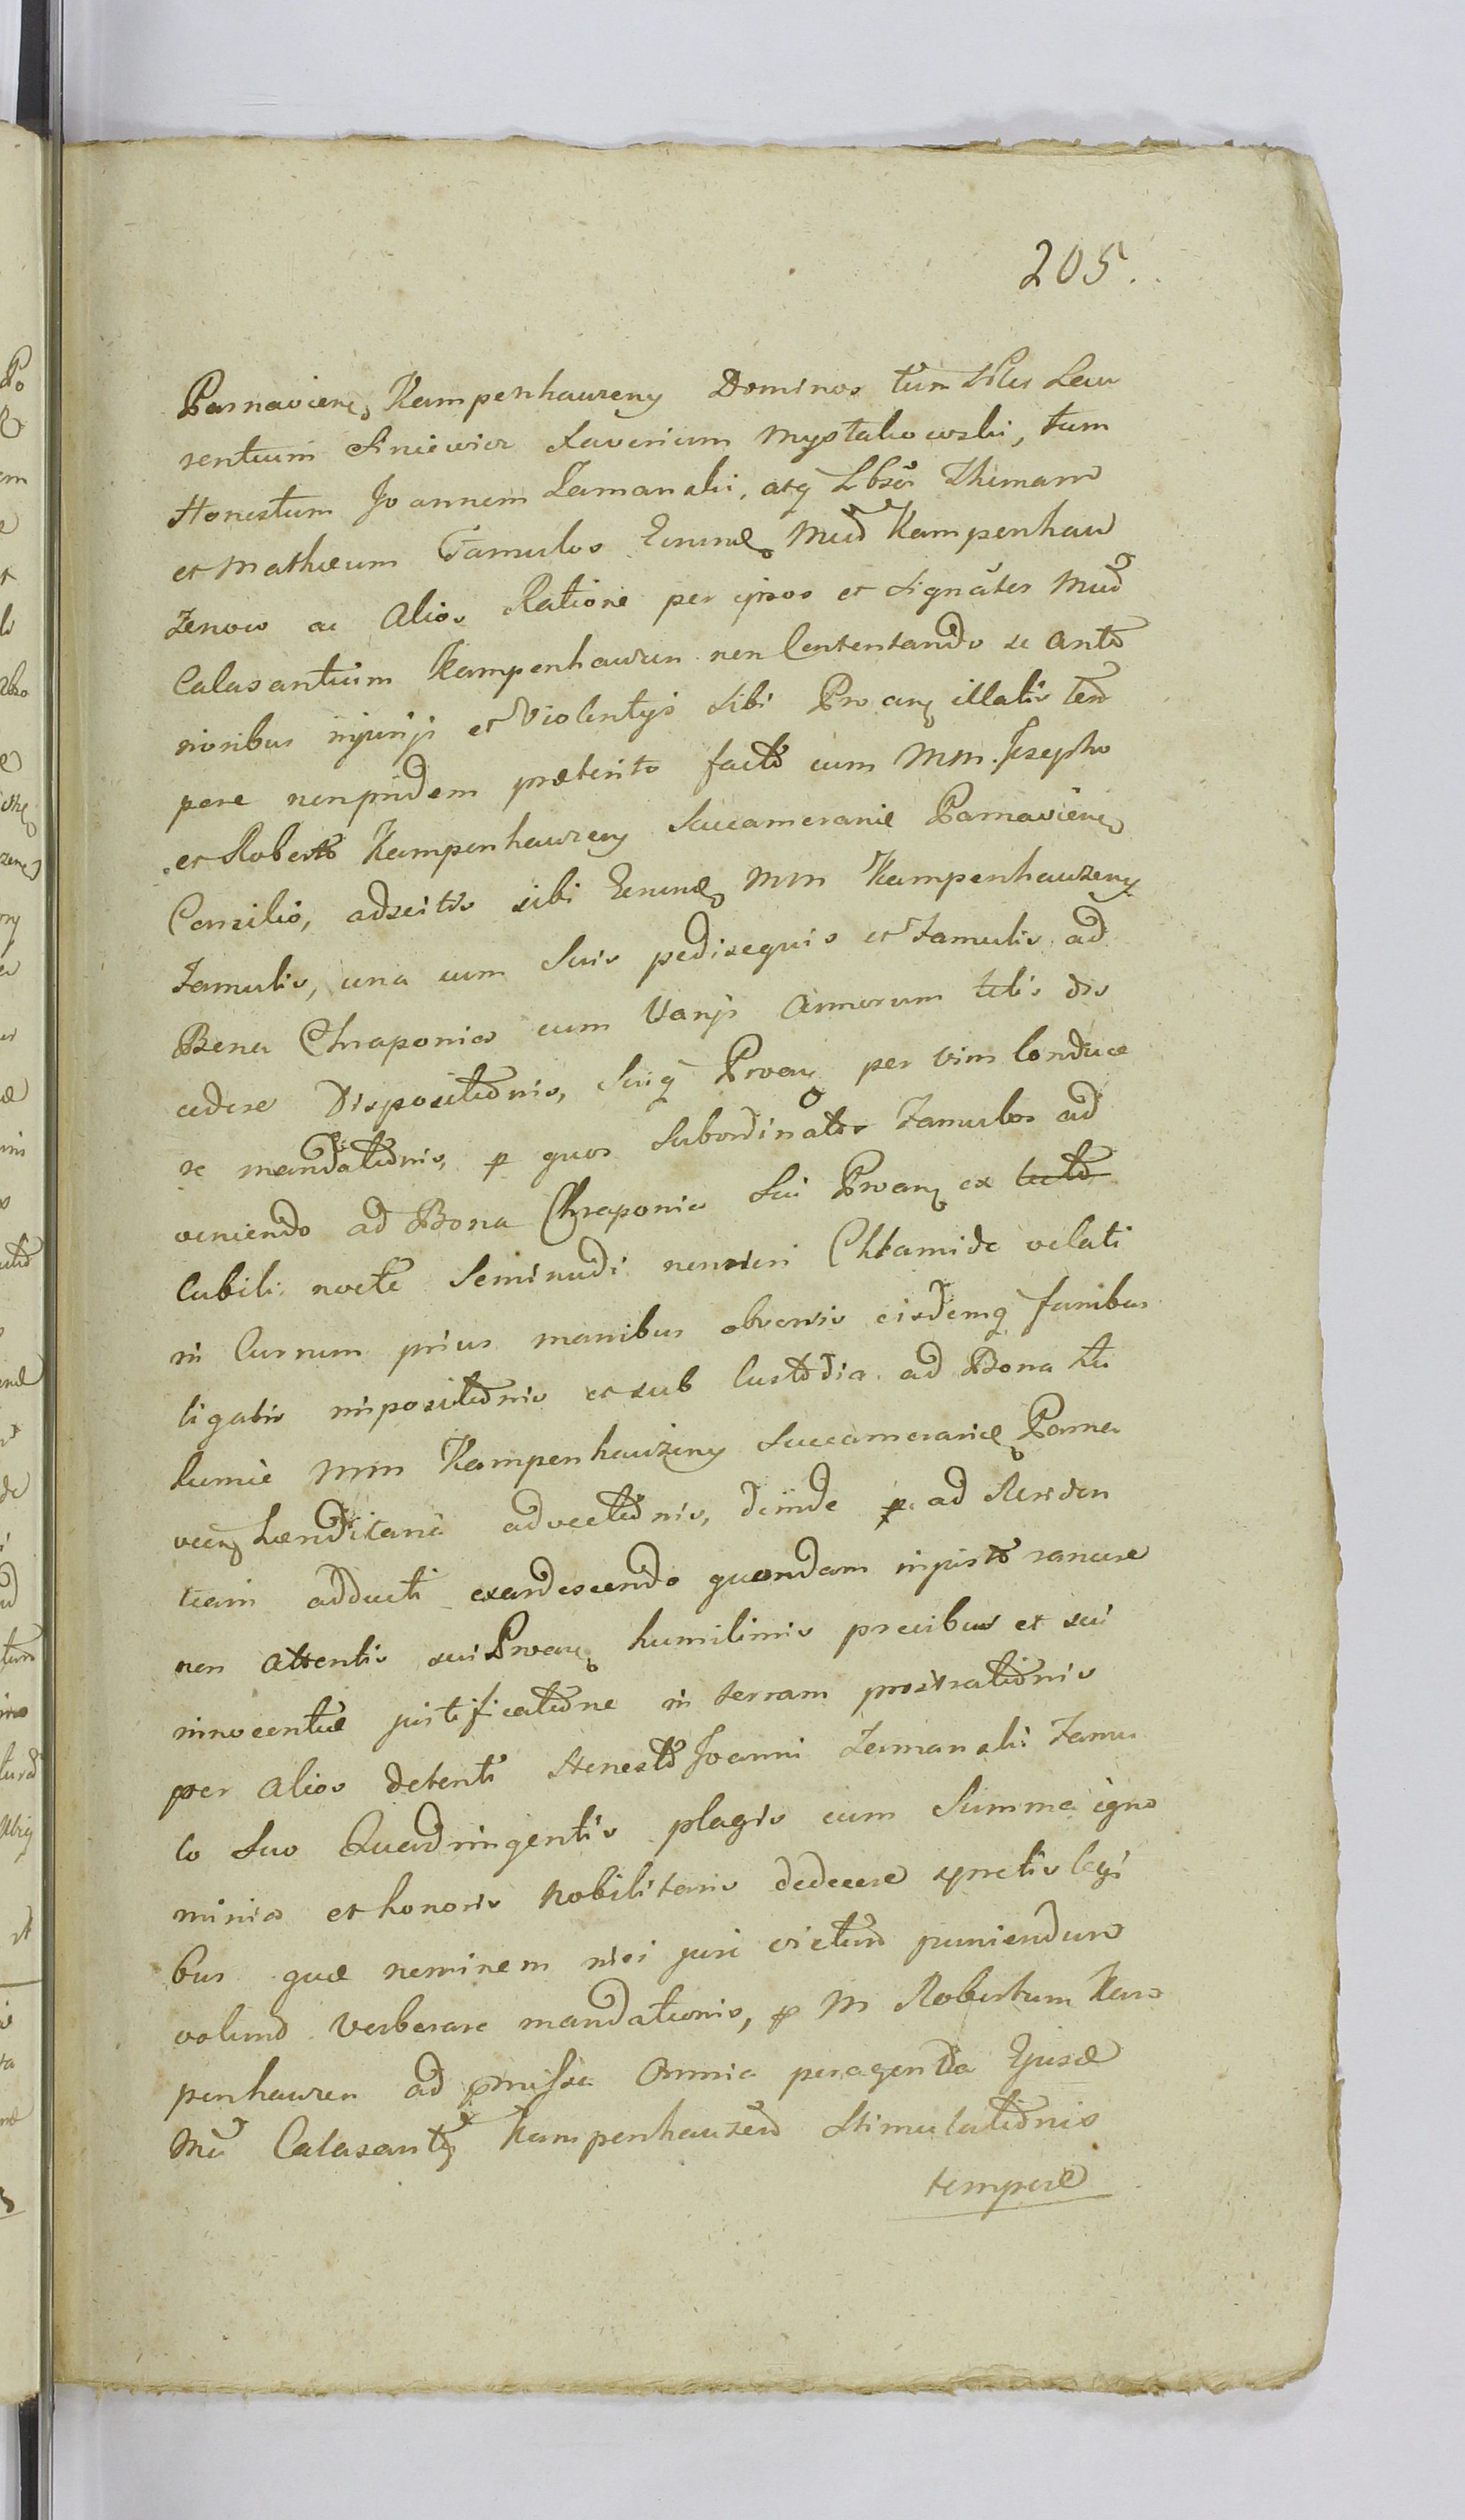 205.
Parnavien Kampenhauzeny Dominos tum Nbles Lau
rentium Siniewicz Xaverium Mystakowski, tum
Honestum Joannem Zamanski, atq Lbros Thimam
et Mathæum Famulos Eorund Mcud Kampenhau
zenow ac Alios Ratione per ipsos et signāter Mcud
Calasantium Kampenhauzen non Contentando se ante
rioribus injurijs et Violentijs sibi Proanj illatis tem
pore nonpridem præterito facto cum MM. Josepho
et Roberto Kampenhauzeny Succameranie Parnavien
Consilio, adscitis sibi Eorund MM Kampenhauzeny
Famulis, una cum Suis pedisequis et Famulis ad
Bona Chraponia cum Varijs Armorum telis dis
cedere Dispositionis, Suiq Proanj per vim Conduce
re mandationis, p quos Subordinatos Famulos ad
veniendo ad Bona Chraponia Sui Proanj ex lecto
Cubili nocte Seminudi Chlamide velati
in Currum prius manibus obversis eisdemq funibus
ligatis impositionis et sub Custodia ad Bona
MM Kampenhauzeny Succameranie Parna
vien Hæreditaria advectionis, deinde p ad Residen
tiam adducti exardescendo quondam injusto rancore
non attentis sui Proanj humilimis precibus et sui
innocentiæ justificatione in terram prostrationis
per alios detenti Honesto Joanni Zamanski Famu
lo Suo Quadringentis plagis cum Summa igno
minia et honoris Nobilitaris dedecore spretis legi
bus quæ neminem nisi jure victum puniendum
volund verberare mandationis, p M Robertum Kam
penhauzen ad pmissa Omnia peragenda Ejusd
Mci Calasantij Kampenhauzen Stimulationis
tempore